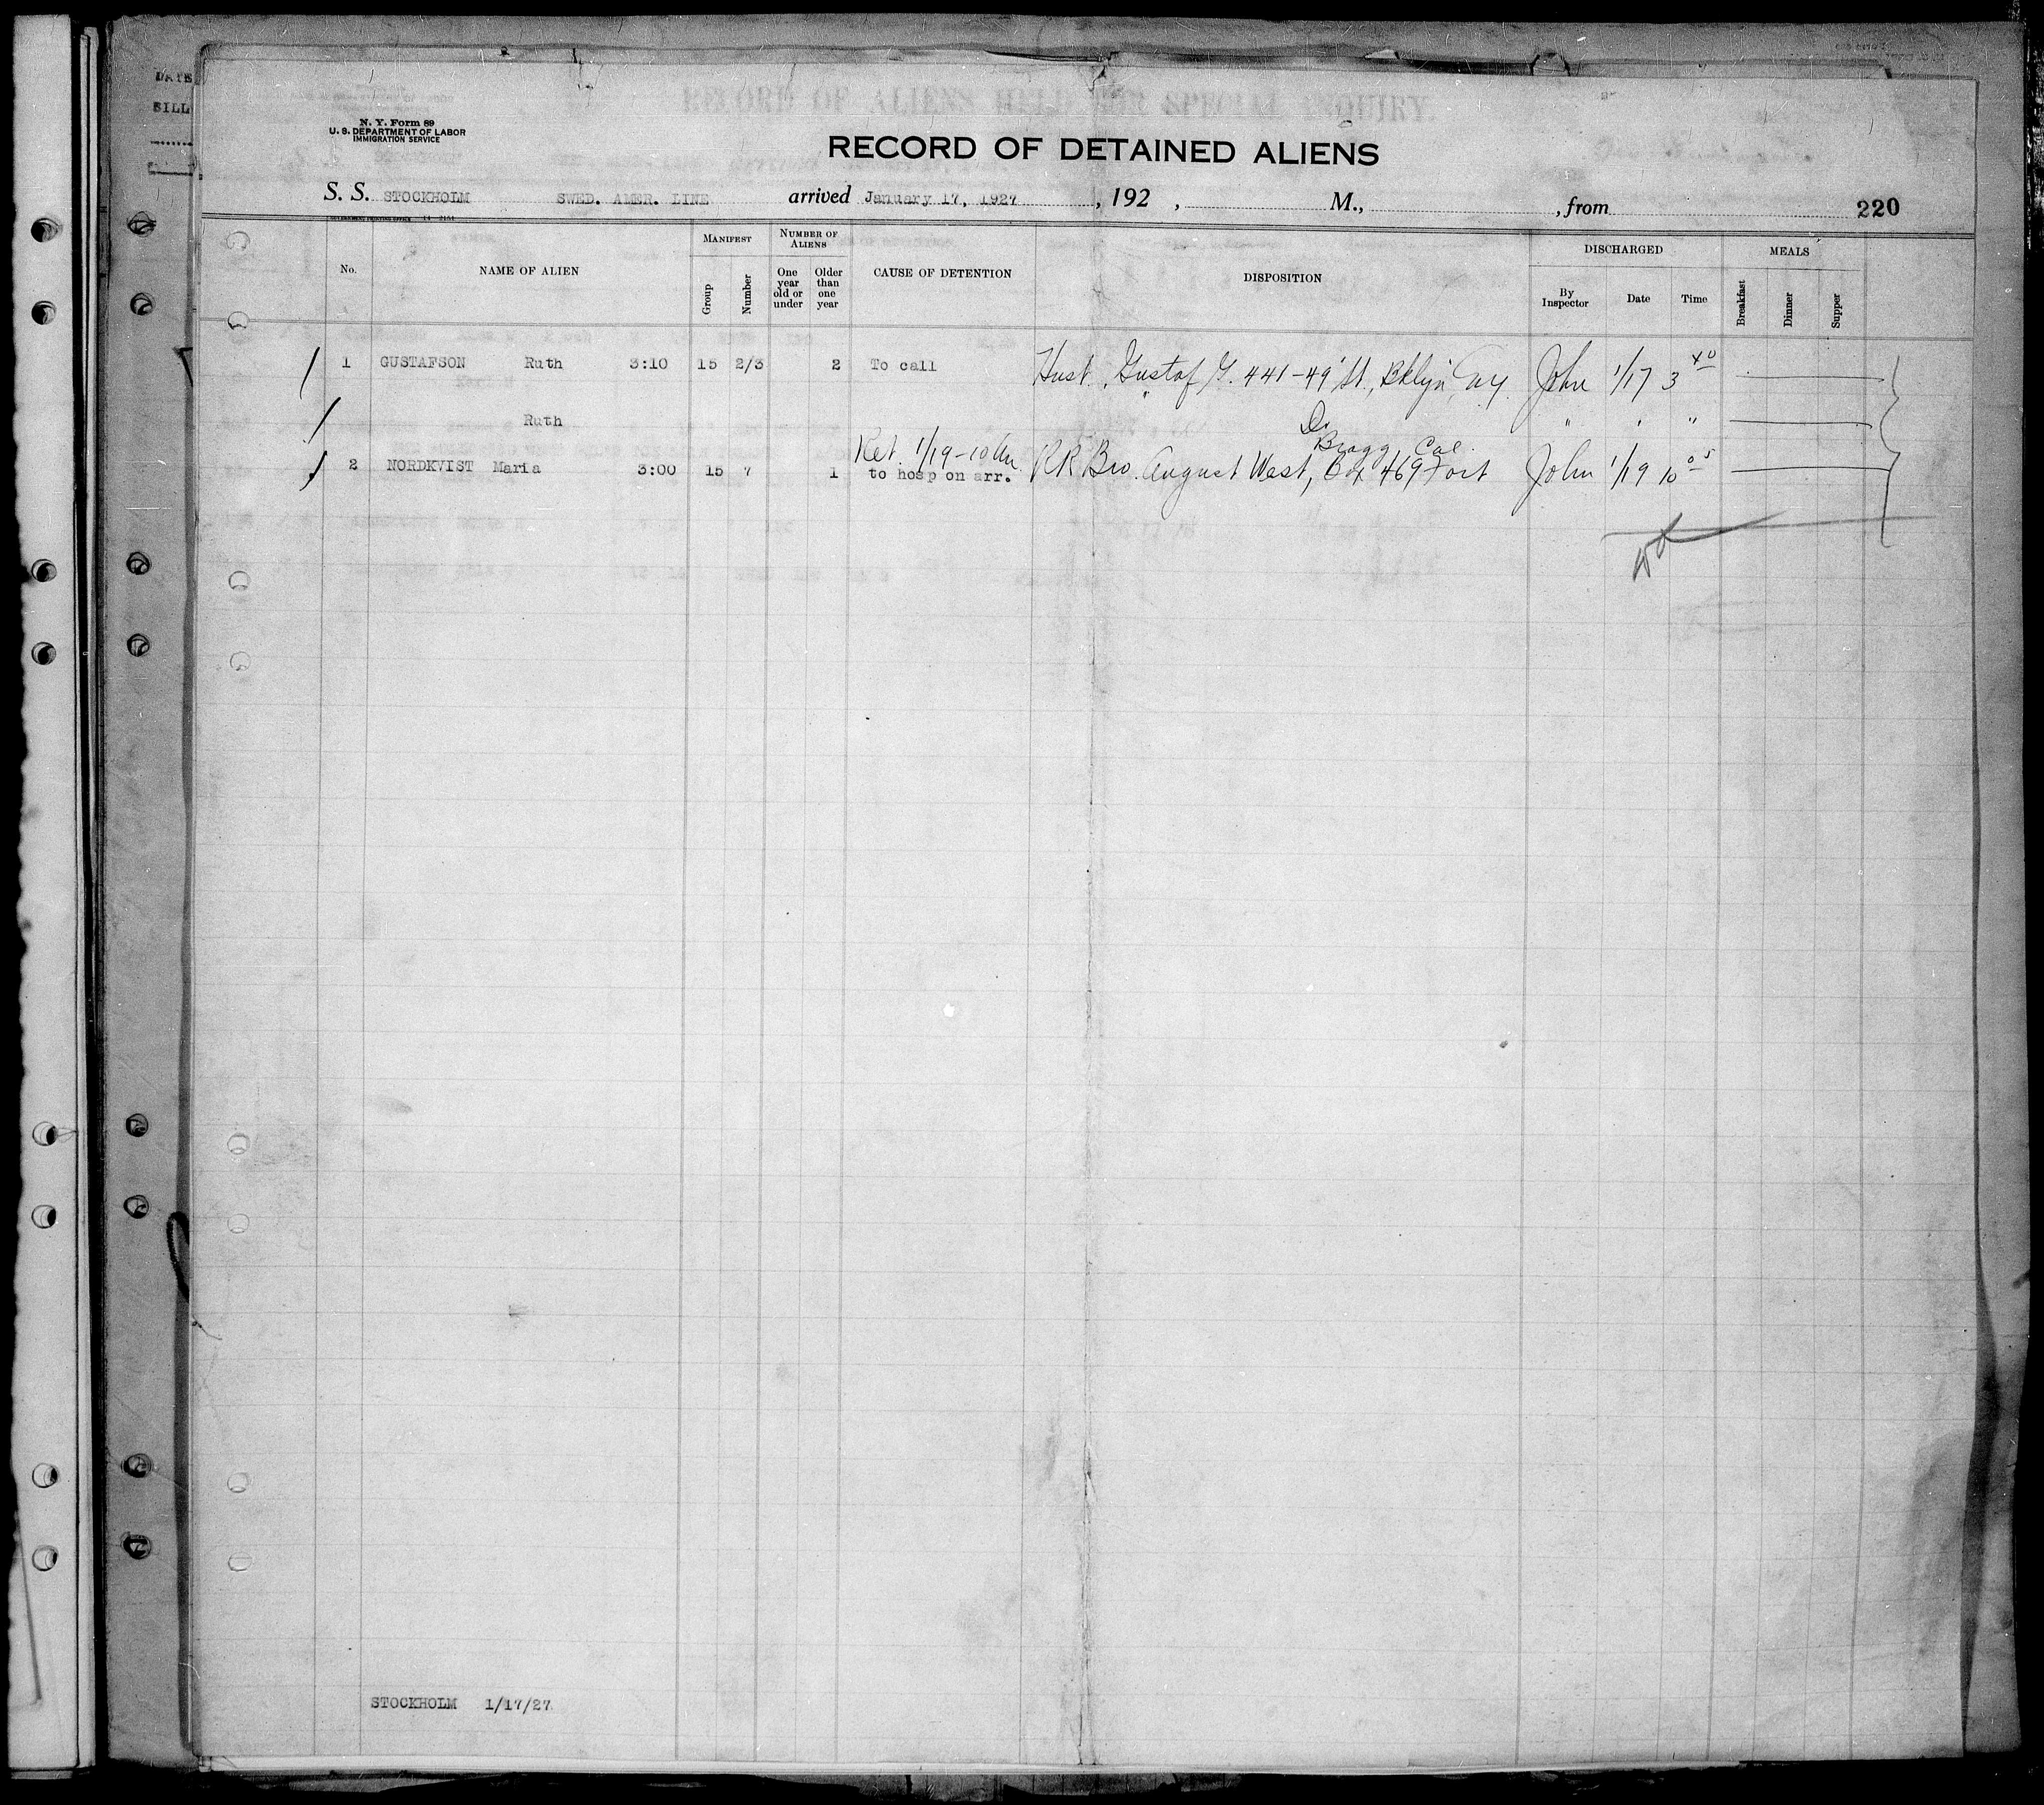 DATE
BILL
RECORD OF ALIENS HELD FOR SPECIAL INQUIRY.
N. Y. Form 89
U. S. DEPARTMENT OF LABOR
IMMIGRATION SERVICE
RECORD OF DETAINED ALIENS
S. S. STOCKHOLM SWED. AMER. LINE arrived January 17, 1927, 192 , M., , from 220
No. NAME OF ALIEN MANIFEST Group Number NUMBER OF ALIENS One year old or under Older than one year CAUSE OF DETENTION DISPOSITION DISCHARGED By Inspector Date Time MEALS Breakfast Dinner Supper
1 GUSTAFSON Ruth 3:10 15 2/3 2 To call Husb. Gustaf G. 441-49 St., Bklyn, N.Y. John 1/17 3 40
Ruth Do " " "
Ret. 1/19-10 Am Bragg Cal.
2 NORDKVIST Maria 3:00 15 7 1 to hosp on arr. RR Bro. August West, Box 469 Fort John 1/19 10 05
STOCKHOLM 1/17/27